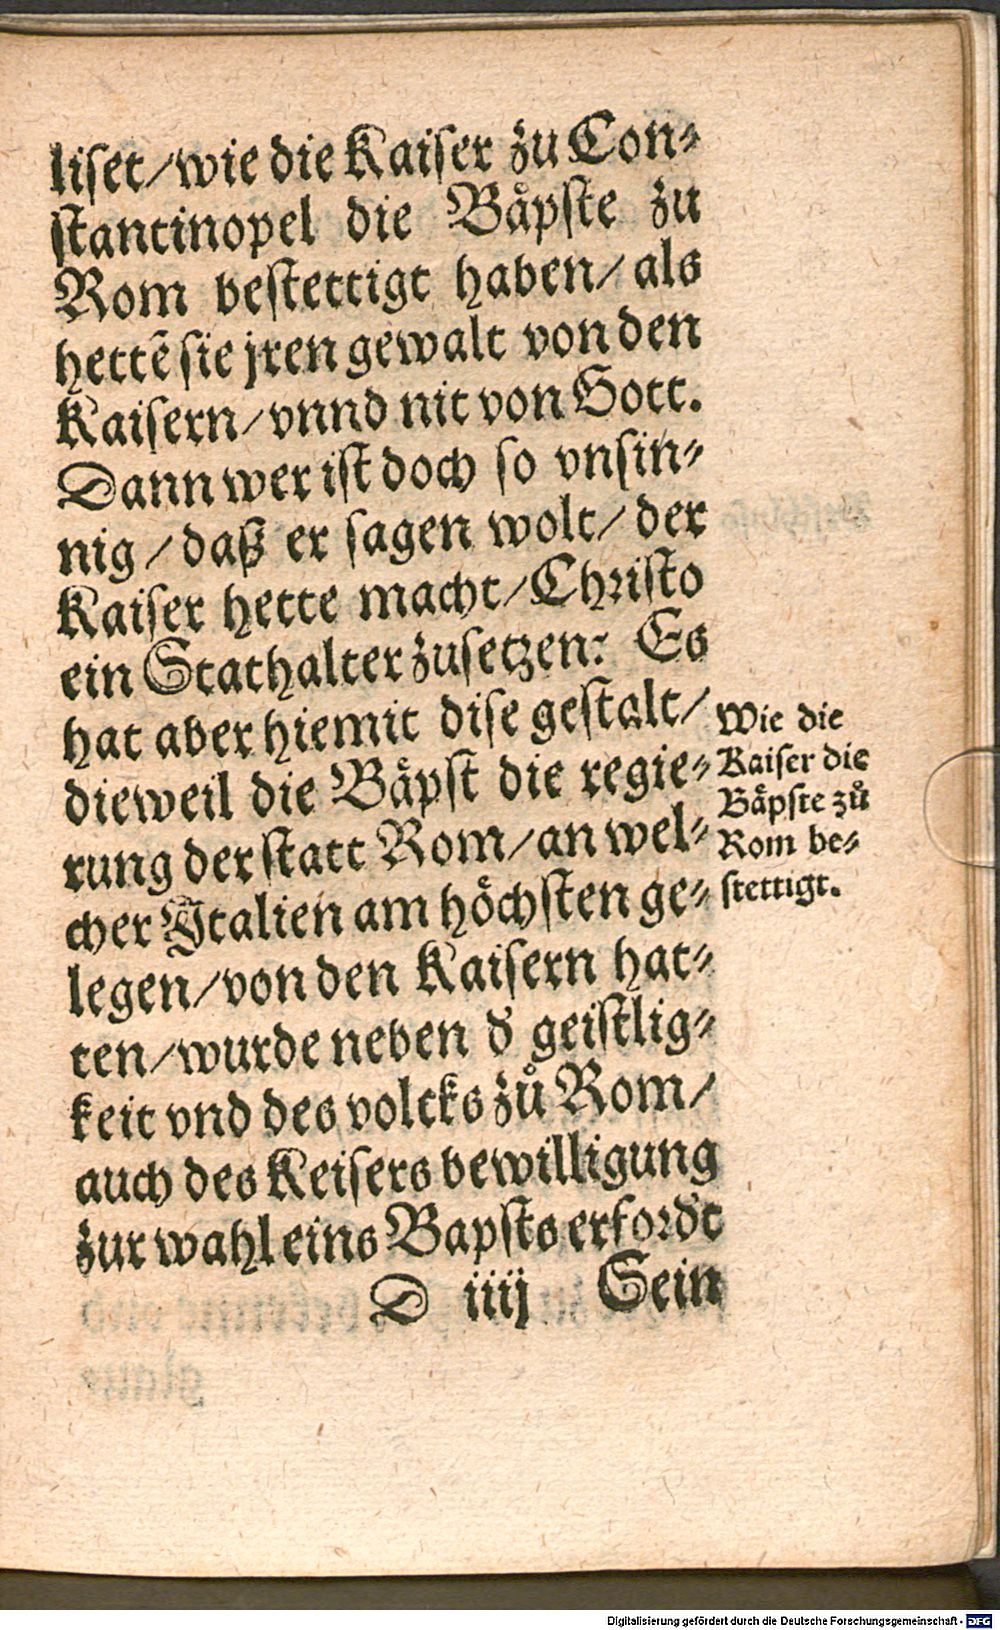 liset/wie die Kaiser zu Con⸗
stantinopel die Baͤpste zu
Rom bestettigt haben/ als
hettē sie jren gewalt von den
Kaisern/vnnd nit von Gott.
Dann wer ist doch so vnsin⸗
nig/daß er sagen wolt/ der
Kaiser hette macht/Christo
ein Stathalter zusetzen: Es
hat aber hiemit dise gestalt/
dieweil die Baͤpst die regie⸗
rung der statt Rom/an wel⸗
cher Italien am hoͤchsten ge⸗
legen/von den Kaisern hat⸗
ten/wurde neben d' geistlig⸗
keit vnd des volcks zuͦ Rom/
auch des Keisers bewilligung
zur wahl eins Bapsts erford't
D iiij Sein
Wie die
Kaiser die
Baͤpste zuͦ
Rom be⸗
stettigt.
Digitalisierung gefördert durch die Deutsche Forschungsgemeinschaft - DFG